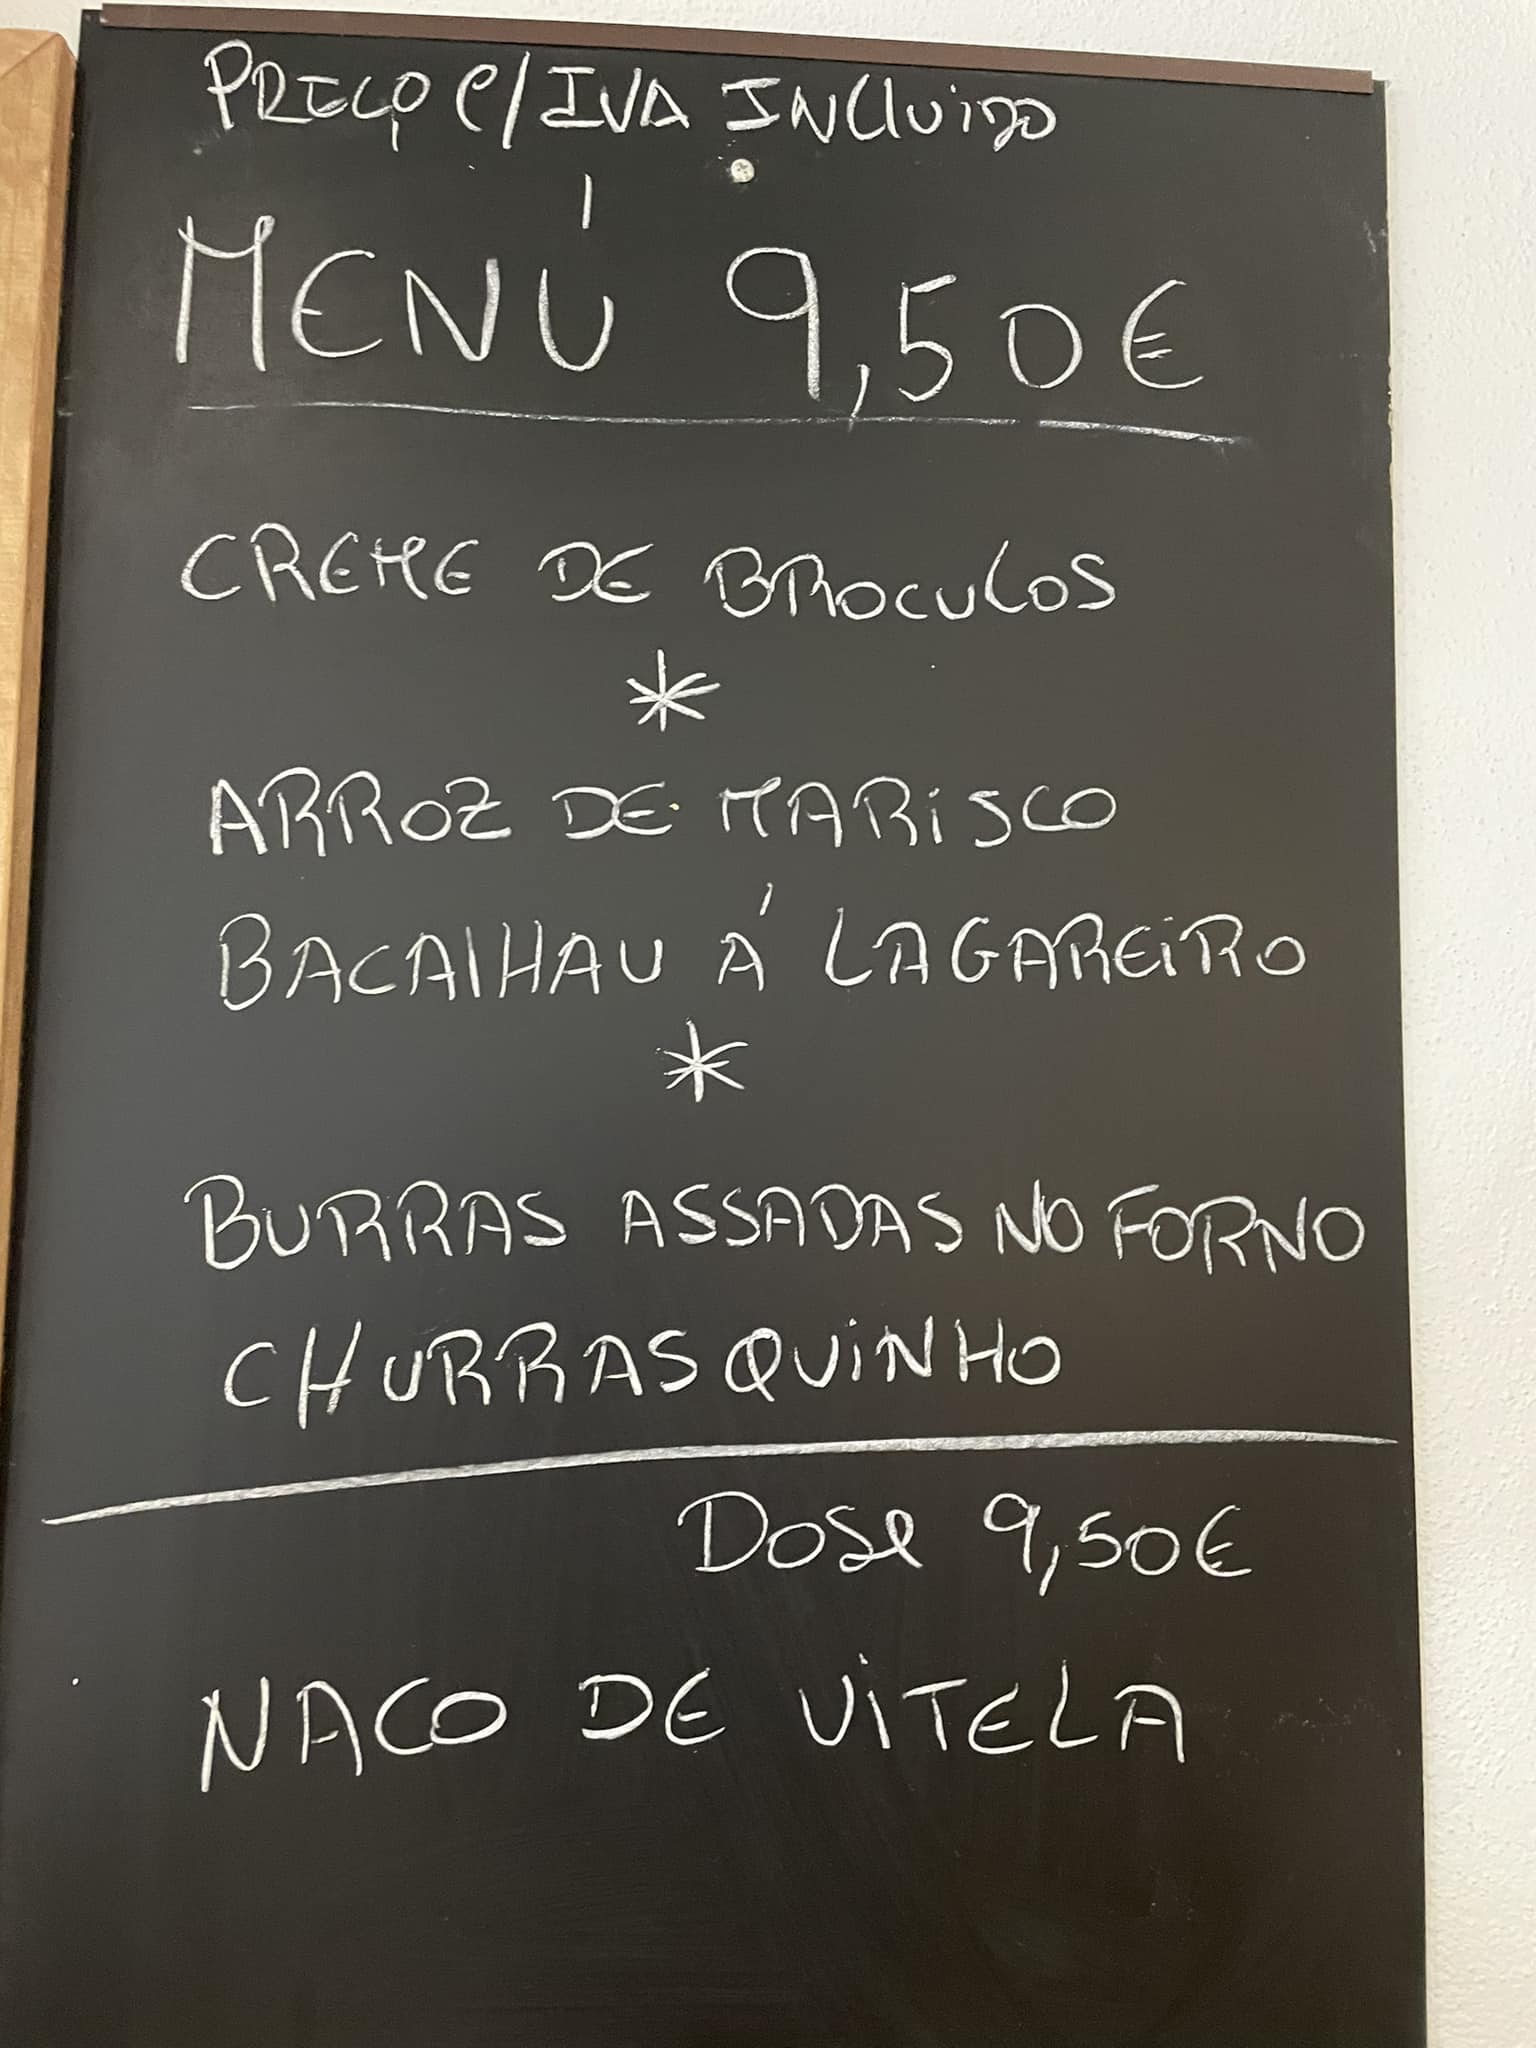 PREÇO C/IVA INCLUIDO
MENÚ 9,50€
CREME DE BROCULOS
*
ARROZ DE MARISCO
BACALHAU Á LAGAREIRO
*
BURRAS ASSADAS NO FORNO
CHURRASQUINHO
DOSE 9,50€
NACO DE VITELA